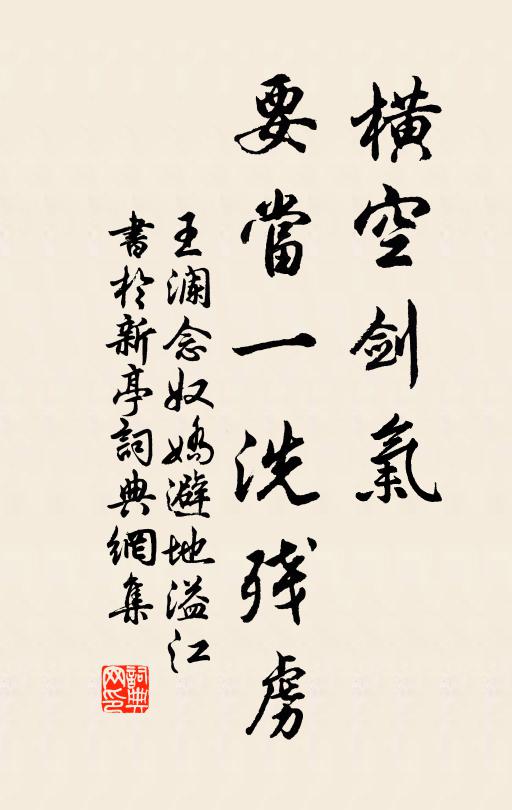 橫空劍氣
要當一洗殘虜
王瀾念奴嬌避地溢江
書於新亭詞典網集
詞典
网印